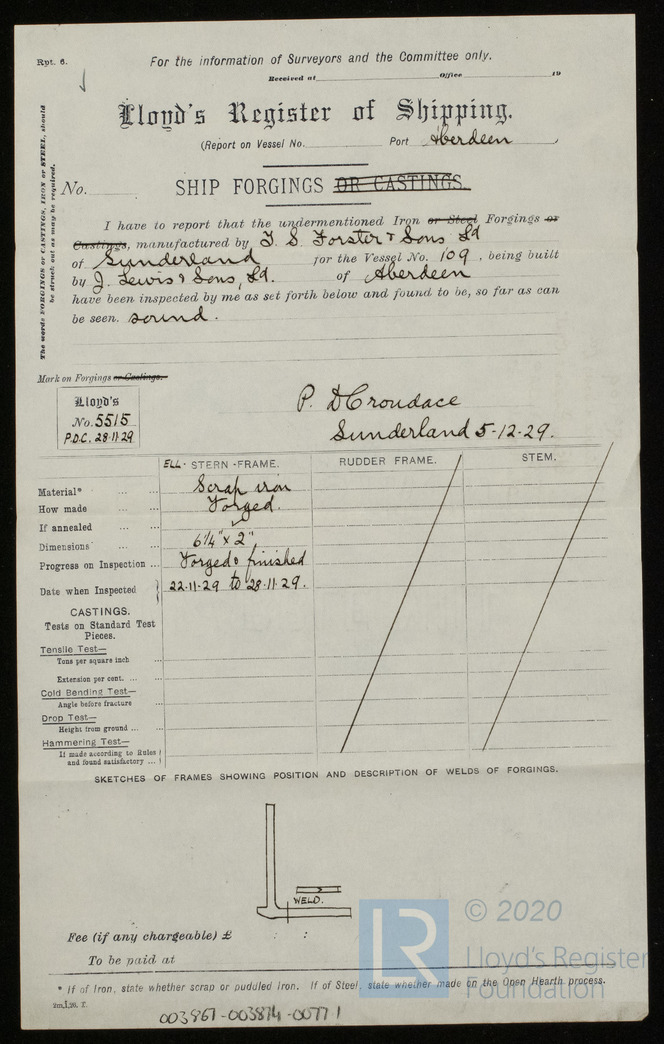 Rpt. 6.
For the information of Surveyors and the Committee only.
Received at Office 19
Lloyd's Register of Shipping.
(Report on Vessel No. Port Aberdeen
No. SHIP FORGINGS OR CASTINGS.
The words FORGINGS or CASTINGS, IRON or STEEL, should
be struck out as may be required.
I have to report that the undermentioned Iron or Steel Forgings or
Castings, manufactured by T. S. Forster & Sons Ld
of Sunderland for the Vessel No. 109, being built
by J. Lewis & Sons, Ld. of Aberdeen
have been inspected by me as set forth below and found to be, so far as can
be seen. sound.
Mark on Forgings or Castings.
Lloyd's
No. 5515
P.D.C. 28.11.29
P. D Croudace
Sunderland 5-12-29.
ELL- STERN-FRAME. RUDDER FRAME. STEM.
Material* ... ... Scrap iron
How made ... ... Forged.
If annealed ... ... ✓
Dimensions ... ... 6¼" x 2"
Progress on Inspection ... Forged & finished
Date when Inspected } 22.11.29 to 28.11.29.
CASTINGS.
Tests on Standard Test
Pieces.
Tensile Test—
Tons per square inch ...
Extension per cent. ... ...
Cold Bending Test—
Angle before fracture ...
Drop Test—
Height from ground ... ...
Hammering Test—
If made according to Rules }
and found satisfactory ... }
SKETCHES OF FRAMES SHOWING POSITION AND DESCRIPTION OF WELDS OF FORGINGS.
WELD.
Fee (if any chargeable) £ : :
To be paid at
* If of Iron, state whether scrap or puddled Iron. If of Steel, state whether made on the Open Hearth process.
2m,1,26. T.
003867-003874-0077 1
LR
© 2020
Lloyd's Register
Foundation